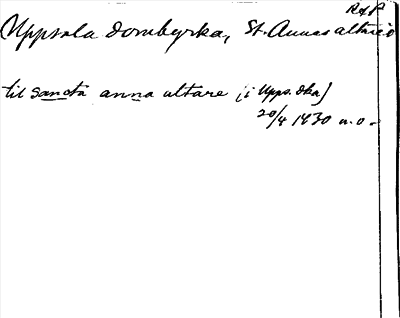 RAP
Uppsala domkyrka, St. Annas altare
til sancta anna altare [i Upps. dka]
20/4 1430 u. o.